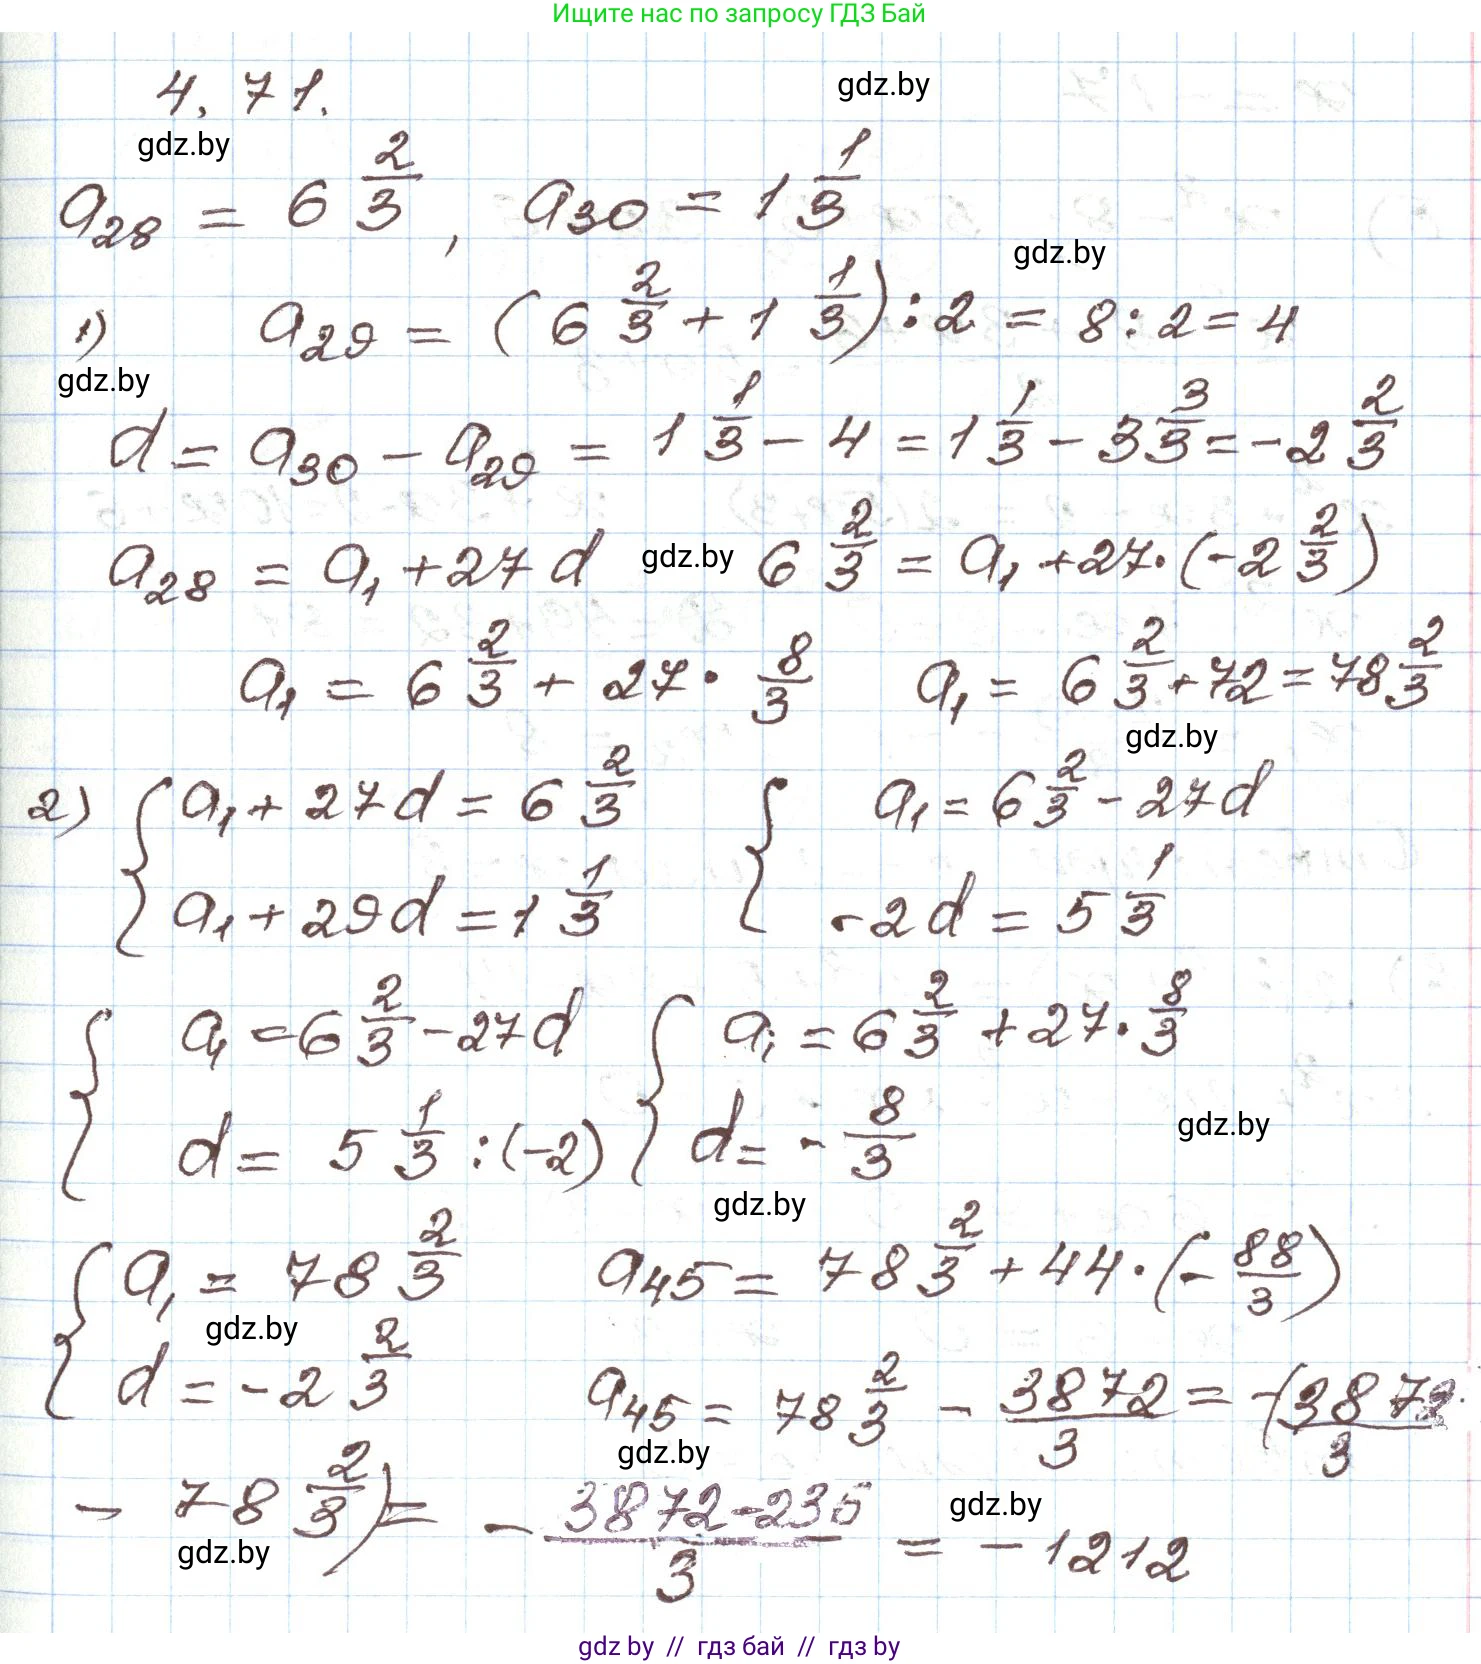 Ищите нас по запросу ГДЗ Бай
4.71.
gdz.by
gdz.by
a₂₈ = 6 2/3, a₃₀ = 1 1/3
gdz.by
1) a₂₉ = (6 2/3 + 1 1/3) : 2 = 8 : 2 = 4
gdz.by
d = a₃₀ - a₂₉ = 1 1/3 - 4 = 1 1/3 - 3 3/3 = -2 2/3
a₂₈ = a₁ + 27d gdz.by 6 2/3 = a₁ + 27 · (-2 2/3)
a₁ = 6 2/3 + 27 · 8/3 a₁ = 6 2/3 + 72 = 78 2/3
gdz.by
2) { a₁ + 27d = 6 2/3 { a₁ = 6 2/3 - 27d
a₁ + 29d = 1 1/3 -2d = 5 1/3
{ a₁ = 6 2/3 - 27d { a₁ = 6 2/3 + 27 · 8/3
d = 5 1/3 : (-2) d = - 8/3
gdz.by
gdz.by
{ a₁ = 78 2/3 a₄₅ = 78 2/3 + 44 · (- 88/3)
gdz.by
d = -2 2/3 a₄₅ = 78 2/3 - 3872/3 = -(3872/3
gdz.by
- 78 2/3) = - 3872-236/3 = -1212
gdz.by
gdz.by
gdz by // гдз бай // гдз by